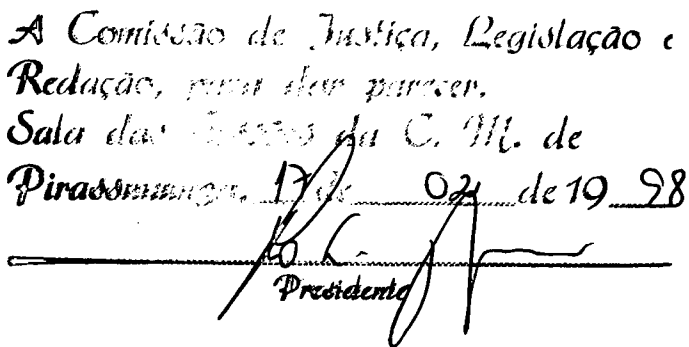 A Comissão de Justiça, Legislação e
Redação, para dar parecer.
Sala das Sessões da C. M. de
Pirassununga, 17 de 02 de 19 98
Presidente